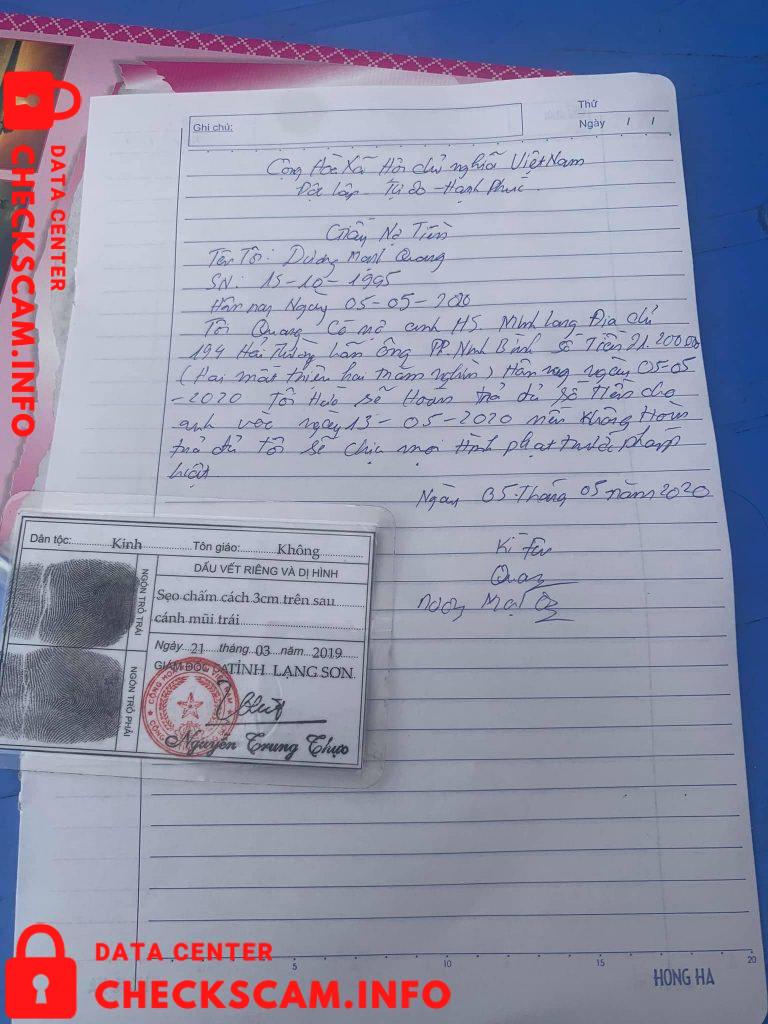 DATA CENTER
CHECKSCAM.INFO
Ghi chú:
Thứ
Ngày / /
Cộng Hoà Xã Hội chủ nghĩa Việt Nam
Độc lập - Tự do - Hạnh Phúc.
Giấy Nợ Tiền
Tên Tôi: Dương Mạnh Quang
SN: 15-10-1995
Hôm nay Ngày 05-05-2020
Tôi Quang Có nợ anh HS. Minh Long Địa chỉ
194 Hải Thượng Lãn Ông PP. Ninh Bình Số Tiền 21.200.000
(Hai mốt triệu hai trăm nghìn) Hôm nay ngày 05-05
-2020 Tôi Hứa sẽ Hoàn trả đủ số tiền cho
anh vào ngày 13-05-2020 nếu không Hoàn
trả đủ Tôi sẽ chịu mọi Hình phạt trước pháp
luật
Ngày 05 Tháng 05 năm 2020
Kí tên
Quang
Dương Mạnh
Dân tộc: Kinh Tôn giáo: Không
DẤU VẾT RIÊNG VÀ DỊ HÌNH
Sẹo chấm cách 3cm trên sau
cánh mũi trái
Ngày 21 tháng 03 năm 2019
GIÁM ĐỐC CA TỈNH LẠNG SƠN
Nguyễn Trung Thực
NGÓN TRỎ TRÁI
NGÓN TRỎ PHẢI
5 10 15 20
HONG HA
DATA CENTER
CHECKSCAM.INFO